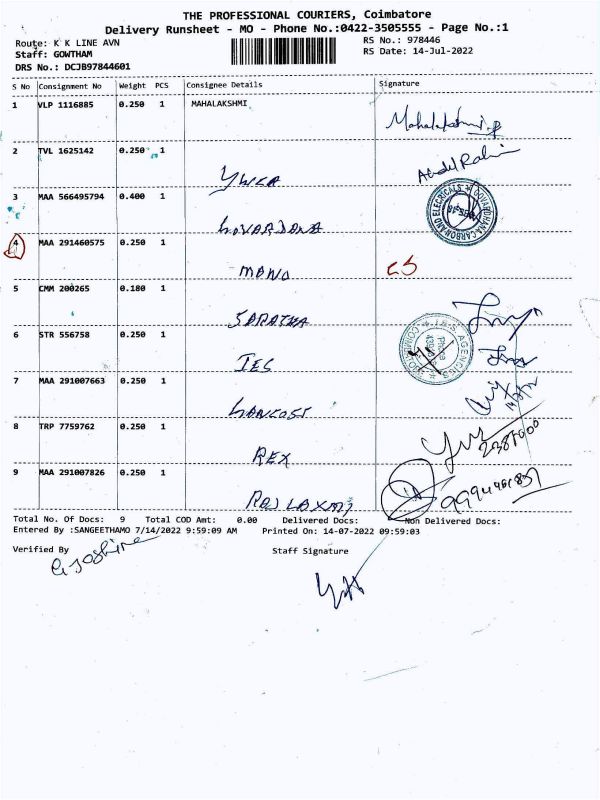 THE PROFESSIONAL COURIERS, Coimbatore
Delivery Runsheet - MO - Phone No.:0422-3505555 - Page No.:1
Route: K K LINE AVN
RS No.: 978446
Staff: GOWTHAM
RS Date: 14-Jul-2022
DRS No.: DCJB97844601
S No Consignment No Weight PCS Consignee Details Signature
1 VLP 1116885 0.250 1 MAHALAKSHMI
Mahalakshmi
2 TVL 1625142 0.250 1
YWCA Abdul Rahim
3 MAA 566495794 0.400 1
GOVARDANA GOVARDHANA CARBON AND ELECRICALS
4 MAA 291460575 0.250 1
MANO CS
5 CMM 200265 0.180 1
SARATHA
6 STR 556758 0.250 1
IES I.E.S. AGENCIES
Phone
7 MAA 291007663 0.250 1
8 TRP 7759762 0.250 1
REX
9 MAA 291007826 0.250 1
RAJLAXMI
Total No. Of Docs: 9 Total COD Amt: 0.00 Delivered Docs: Non Delivered Docs:
Entered By :SANGEETHAMO 7/14/2022 9:59:09 AM Printed On: 14-07-2022 09:59:03
Verified By Staff Signature